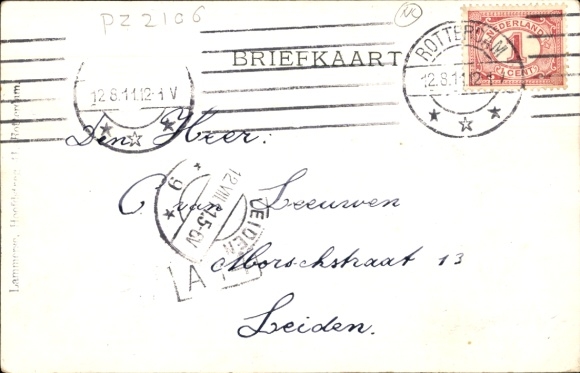 PZ 2106
NC
BRIEFKAART
NEDERLAND
1
CENT
ROTTERDAM
12.8.11.12-1 V
12.8.11.12-1 V
Den Heer:
C van Leeuwen
Morschstraat 13
Leiden.
LEIDEN
12 VIII 5-6V
9
LA